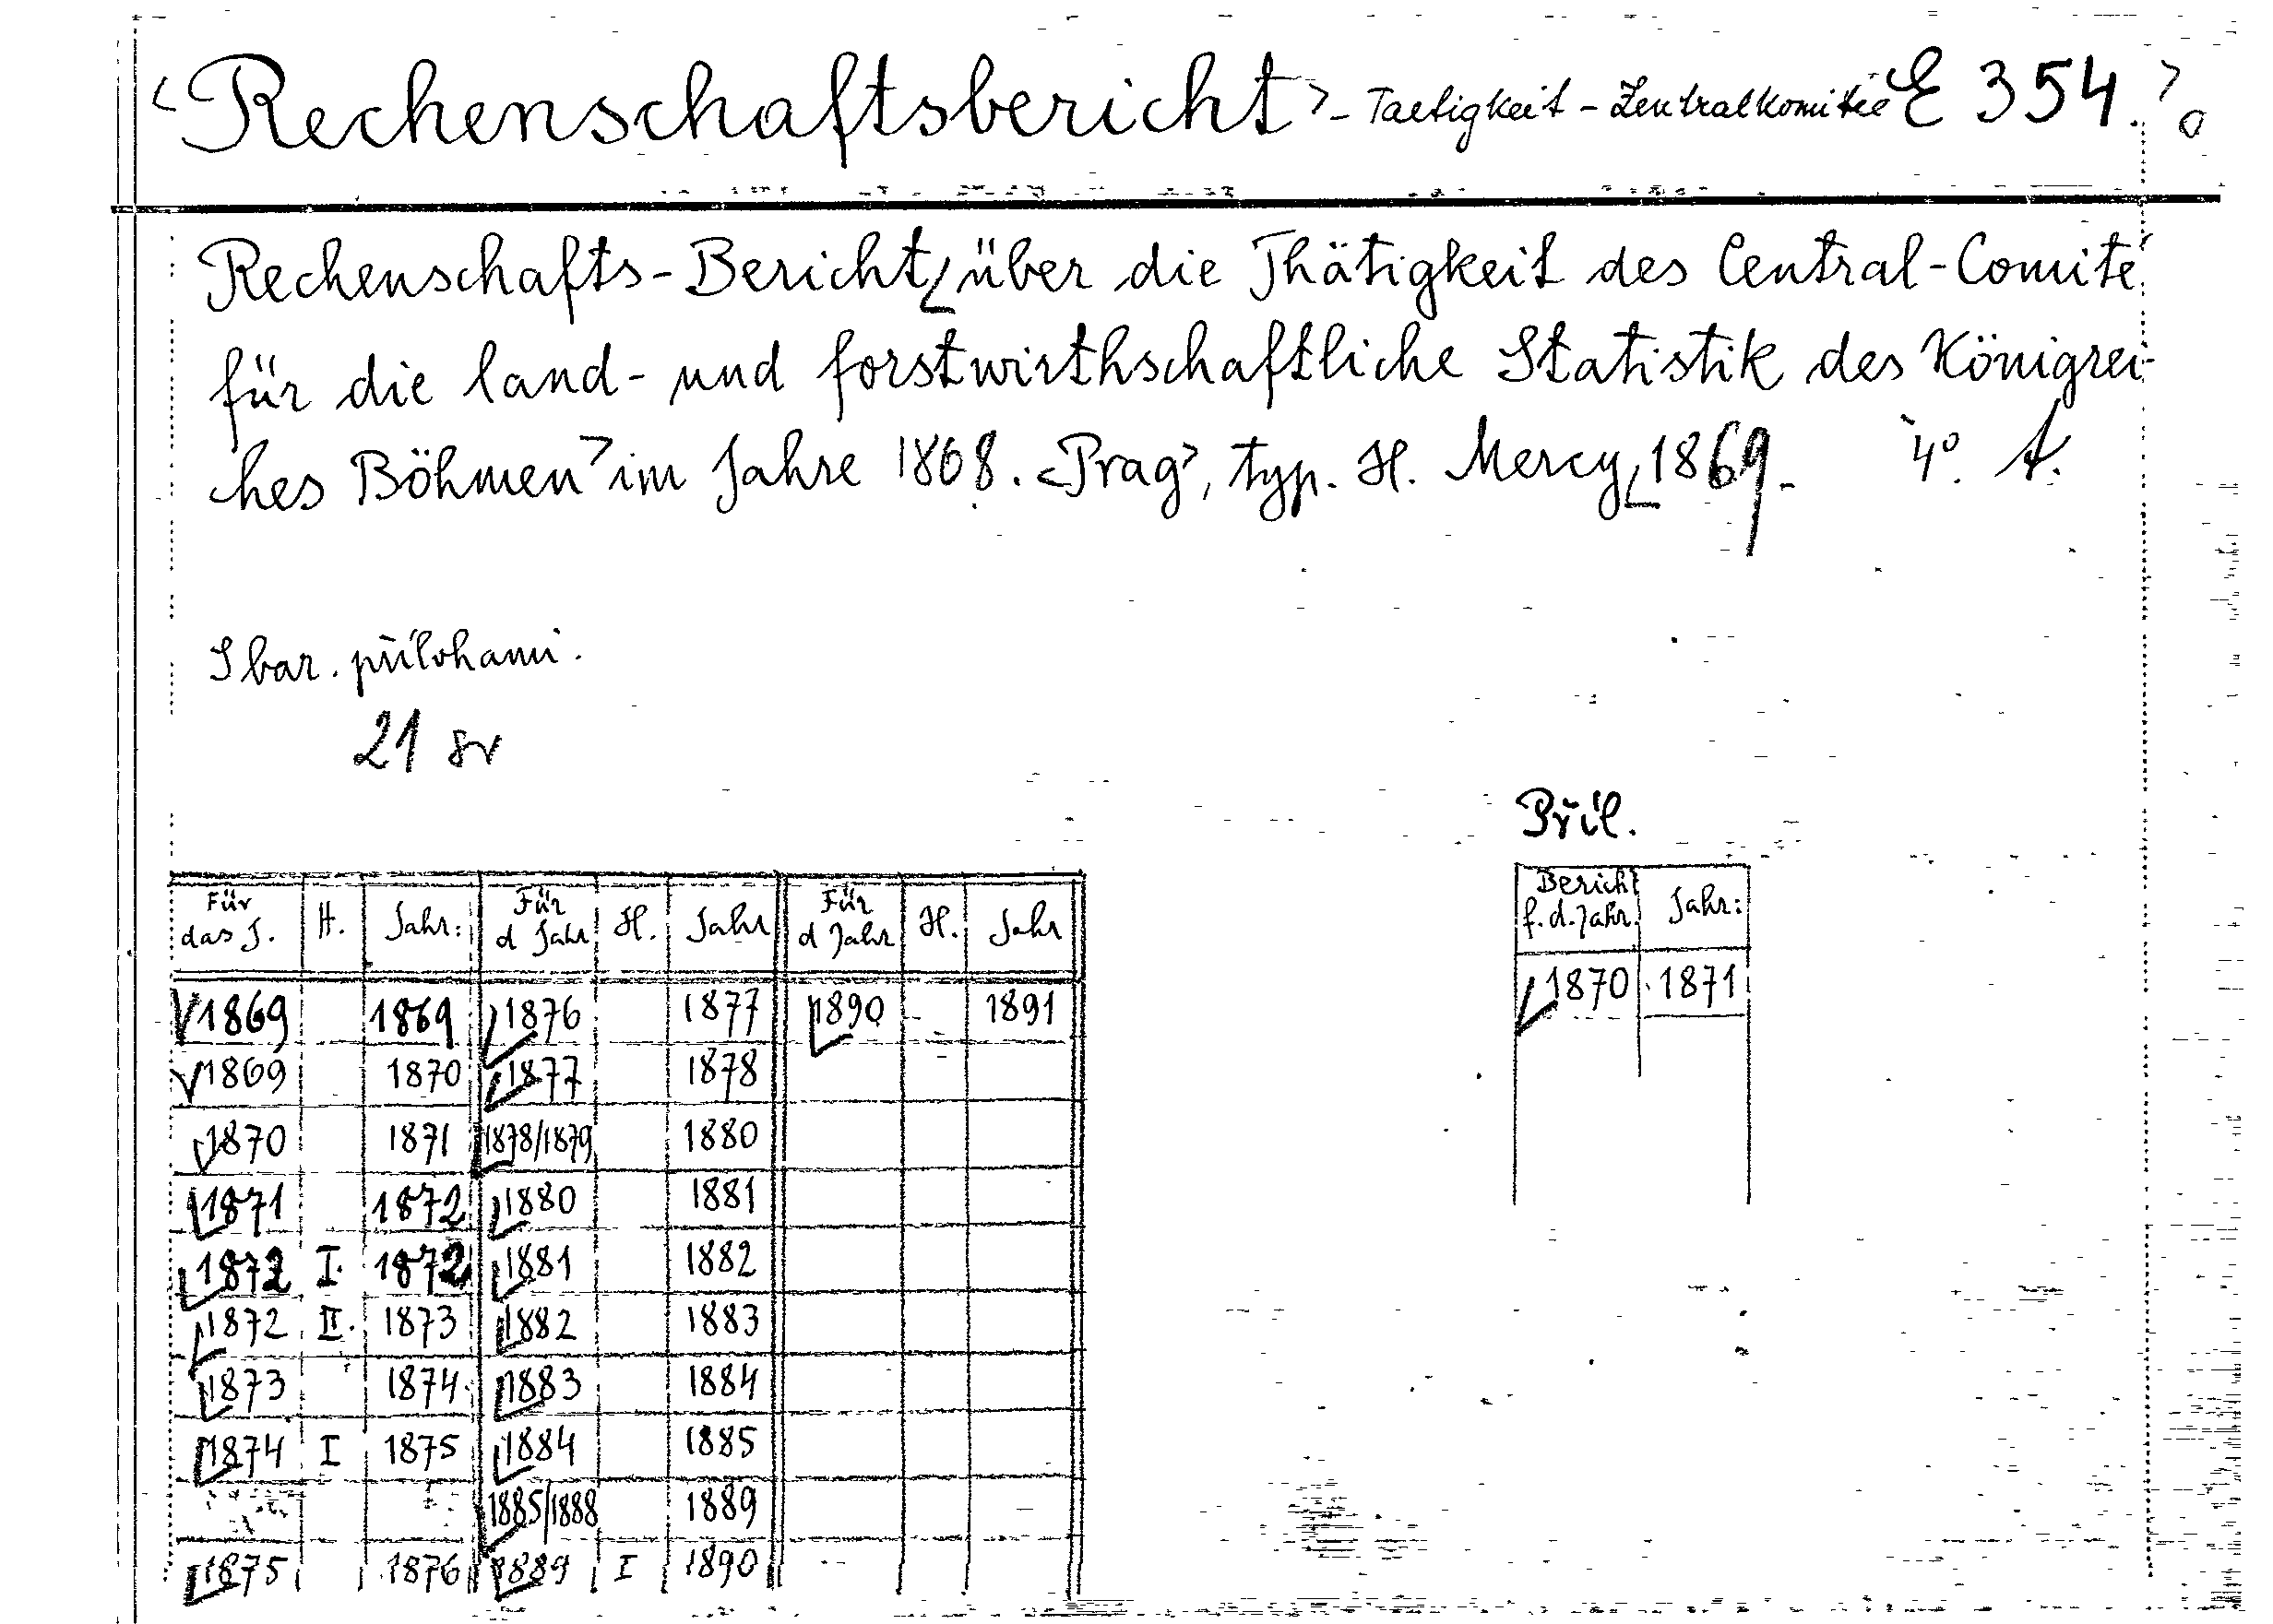 <Rechenschaftsbericht> - Taetigkeit - Zentralkomitee E 354.>
Rechenschafts-Bericht über die Thätigkeit des Central-Comité
für die land- und forstwirthschaftliche Statistik des Königrei-
ches Böhmen> im Jahre 1868. <Prag>, typ. H. Mercy, 1869. 4°. A.
S bar. přílohami.
21 sv
Příl.
Für das J. | H. | Jahr: | Für d Jahr | H. | Jahr | Für d Jahr | H. | Jahr
1869 | | 1869 | 1876 | | 1877 | 1890 | | 1891
1869 | | 1870 | 1877 | | 1878
1870 | | 1871 | 1878/1879 | | 1880
1871 | | 1872 | 1880 | | 1881
1872 | I. | 1872 | 1881 | | 1882
1872 | II. | 1873 | 1882 | | 1883
1873 | | 1874 | 1883 | | 1884
1874 | I | 1875 | 1884 | | 1885
| | | 1885/1888 | | 1889
1875 | | 1876 | 1889 | I | 1890
Bericht f. d. Jahr. | Jahr:
1870 | 1871